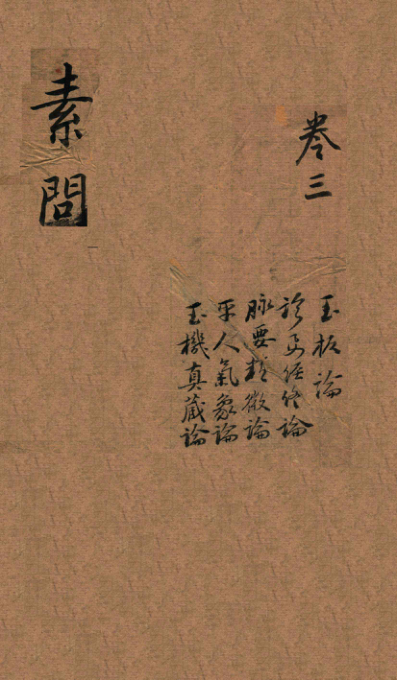 卷三
玉板論
診要經終論
脉要精微論
平人氣象論
玉機真蔵論
素問